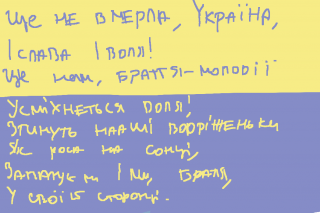 Ще не вмерла, Україна,
І слава І воля!
Ще нам, браття-молодії
Усміхнеться доля!
Згинуть нааші воріженьки
Як роса на сонці,
Запануєм І ми, браття,
У своїй стороні.